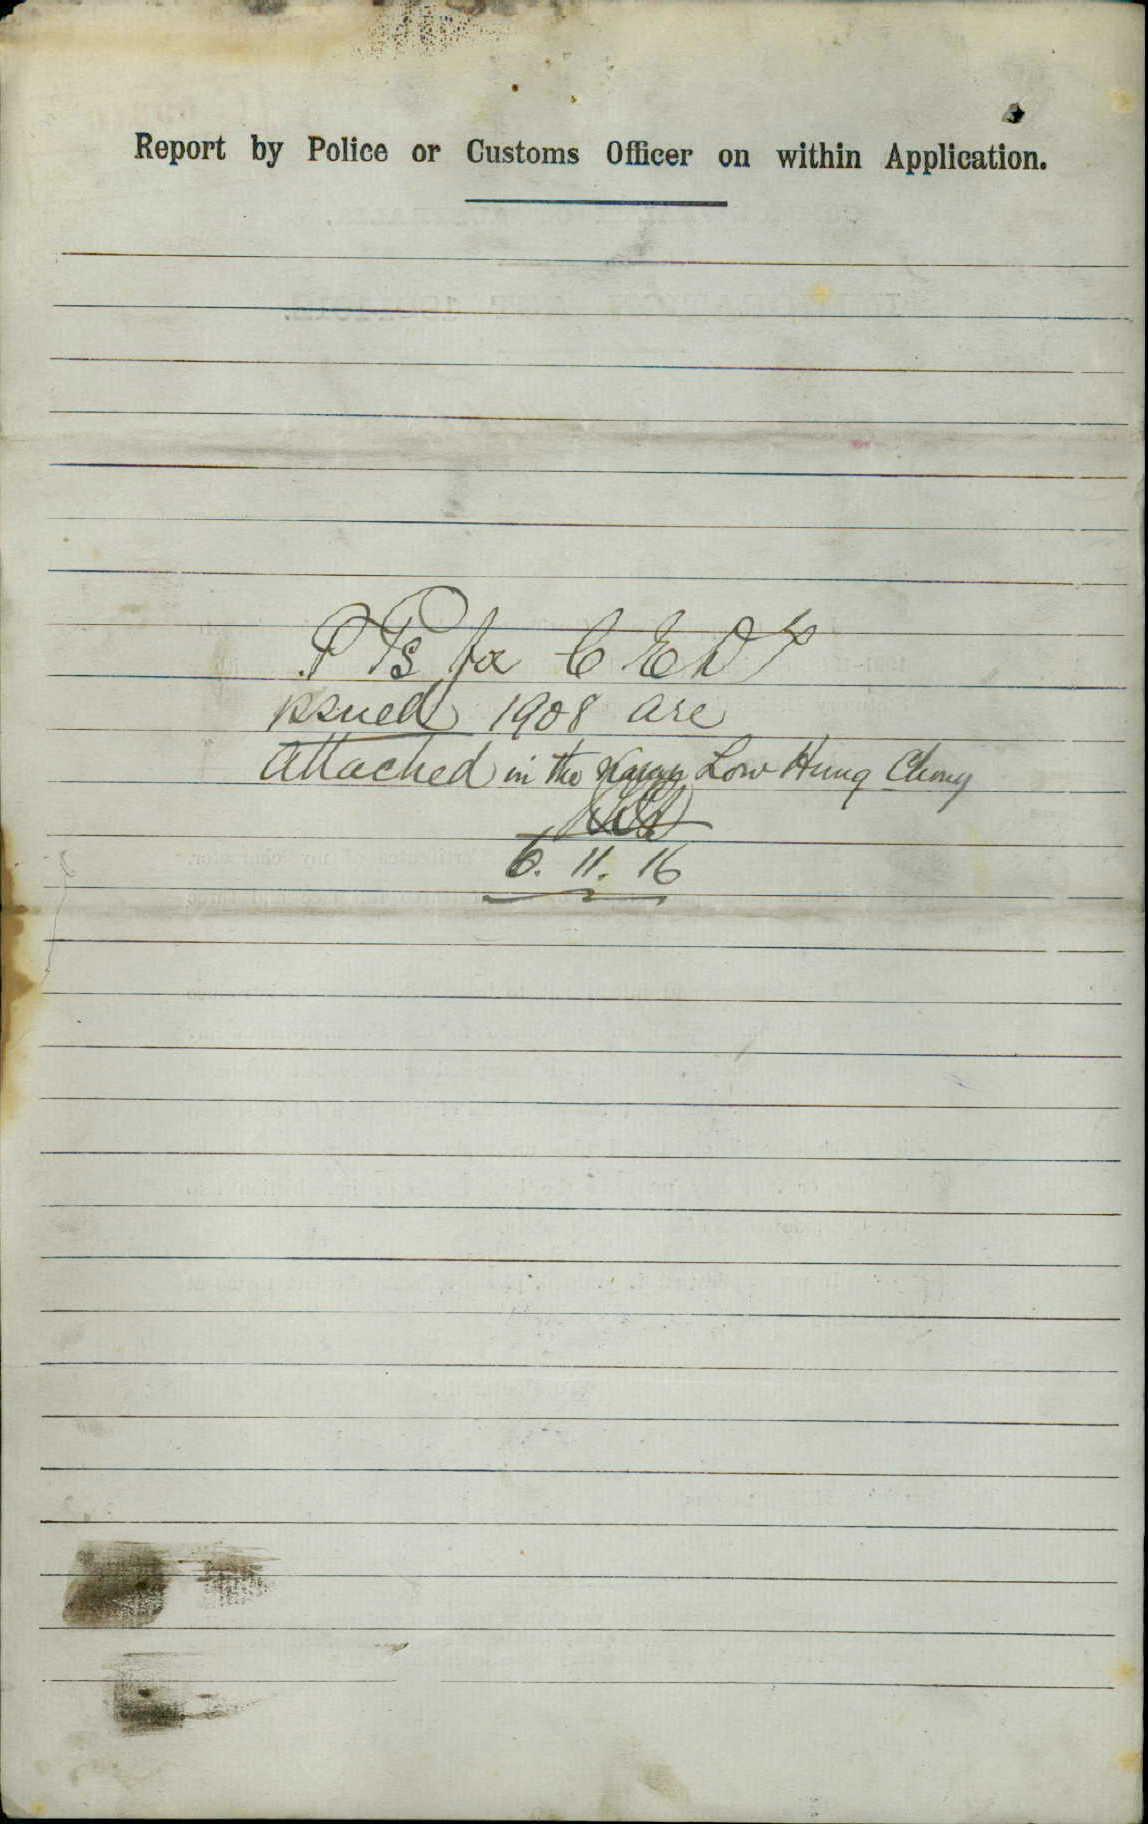 Report by Police or Customs Officer on within Application.
P Ps for C E D T
issued 1908 are
attached in the name Low Hung Chong
6. 11. 16